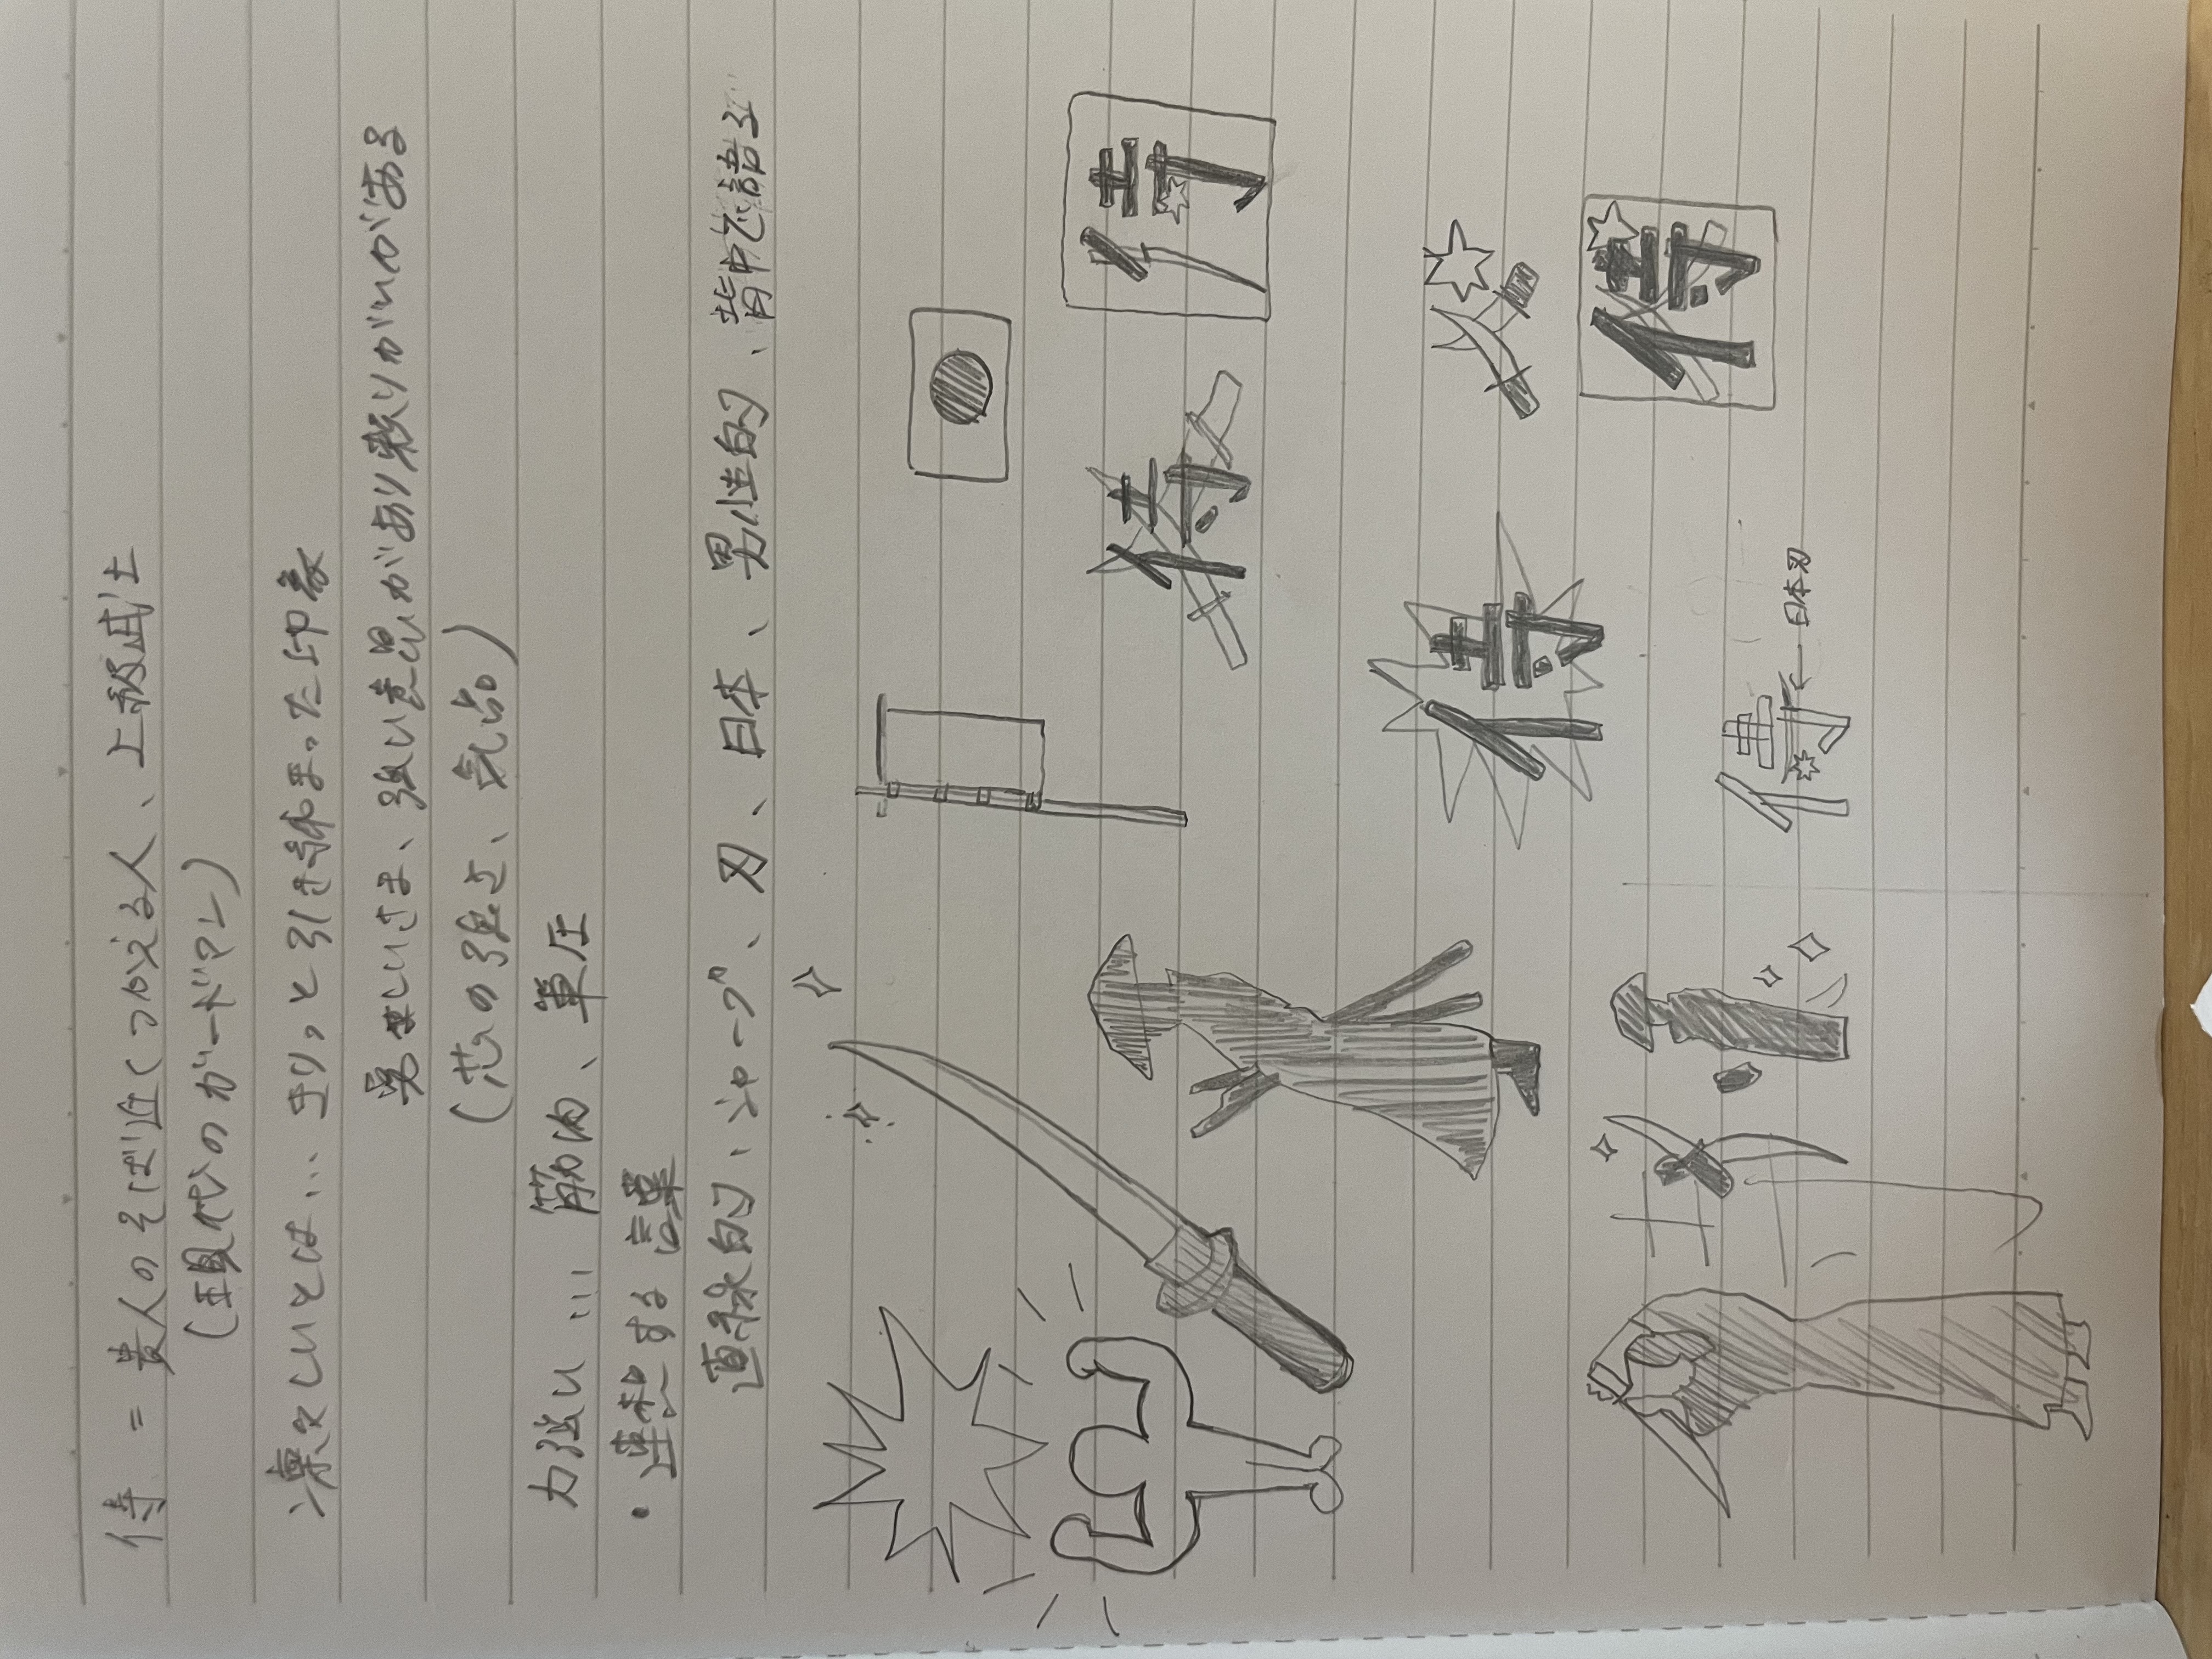 侍 = 貴人のそば近くつかえる人、上級武士
(現代のガードマン)
凛々しいとは… きりっと引き締まった印象
男らしいさま、強い意思があり頼りがいがある
(芯の強さ、気品)
力強い … 筋肉、筆圧
・連想する言葉
直線的、シャープ、刃、日本、男性的、背中で語る
侍
侍
侍
侍
侍 ← 日本刀